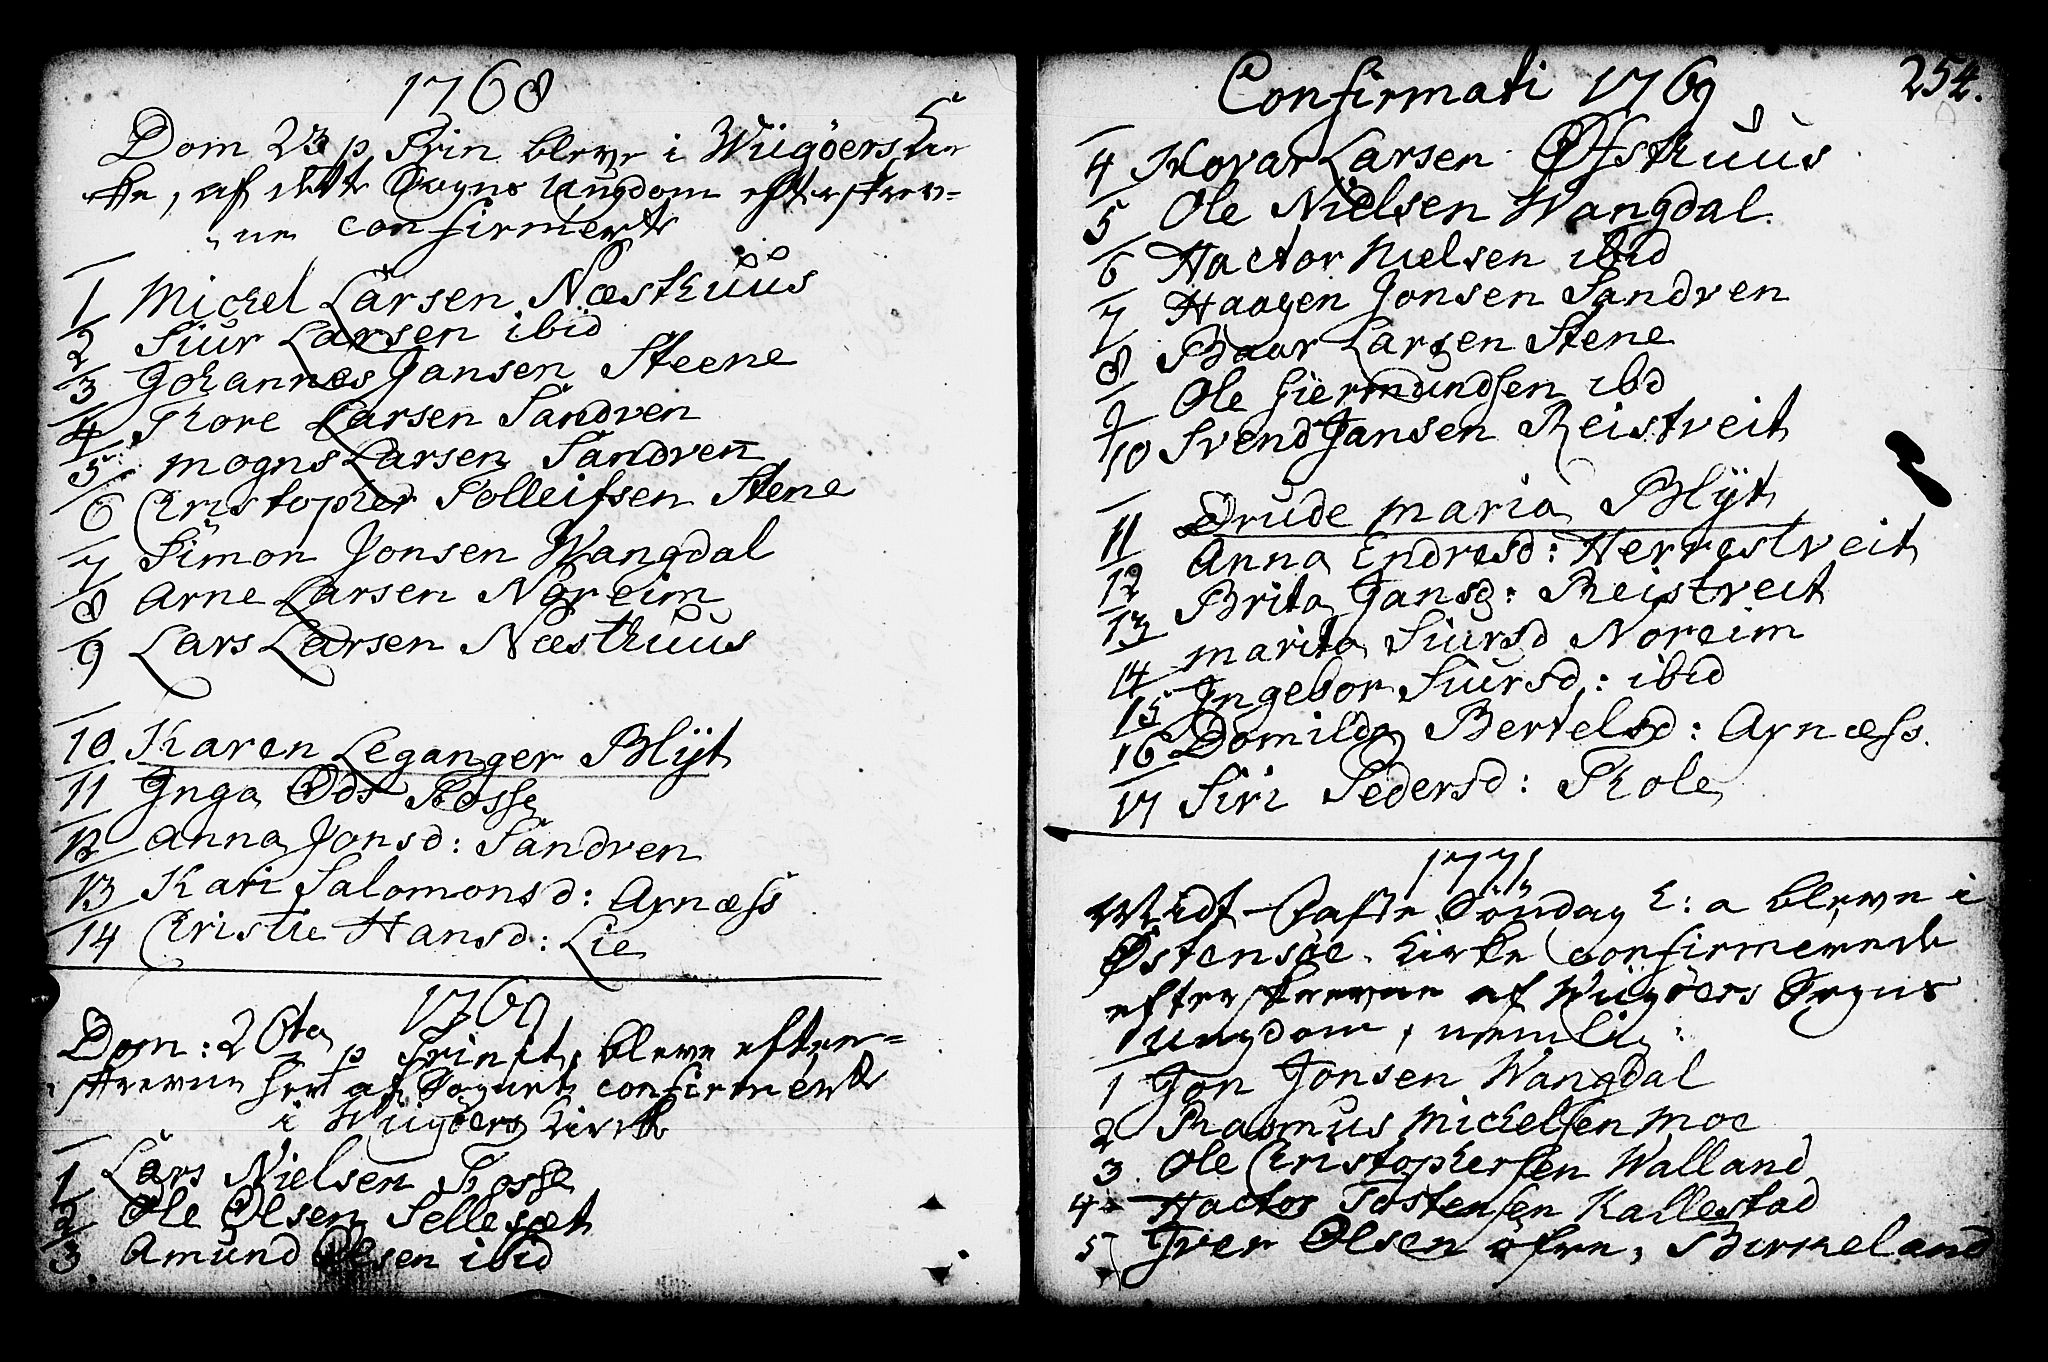 1768
Dom 23 p Trin. bleve i Wiigöers Kir
ke, af dette Sogns Ungdom efterskrev-
ne confirmert
1 Michel Larsen Næsthuus
2 Siur Larsen ibid
3 Johannes Jansen Steene
4 Thore Larsen Sandven
5 Mogns Larsen Sandven
6 Christopher Tolleifsen Stene
7 Simon Jonsen Wangdal
8 Arne Larsen Noreim
9 Lars Larsen Næsthuus
10 Karen Leganger Blÿt
11 Inga Ods Fosse
12 Anna Jonsd: Sandven
13 Kari Salomonsd: Axnæss
14 Christie Hansd: Lie
1769
Dom: 26ta p Trinit, bleve efter-
skrevne her af Sognet confirmert
i Wiigöers Kirke
1 Lars Nielsen Fosse
2 Ole Olsen Sellesæt
3 Amund Olsen ibid
Confirmati 1769
254.
4 Hovar Larsen Øfsthuus
5 Ole Nielsen Wangdal.
6 Hactor Nielsen ibid
7 Haagen Jonsen Sandven
8 Baar Larsen Stene
9 Ole Giermundsen ibd
10 Svend Jansen Reistveit
11 Drude Maria Blÿt
12 Anna Endresd: Herrestveit
13 Brita Jansd: Reistveit
14 Marita Siursd Noreim
15 Ingebor Siursd: ibid
16 Domilda Bertelsd: Axnæss.
17 Siri Pedersd: Skole
1771
Midt-Faste Söndag h: a bleve i
Østensöe Kirke confirmerede
efterskrevne af Wiigöers Sogns
Ungdom, nemlig:
1 Jon Jonsen Wangdal
2 Rasmus Michelsen Moe
3 Ole Christophersen Walland
4 Hactor Tostensen Kallestad
5 Iver Olsen öfre, Birkeland